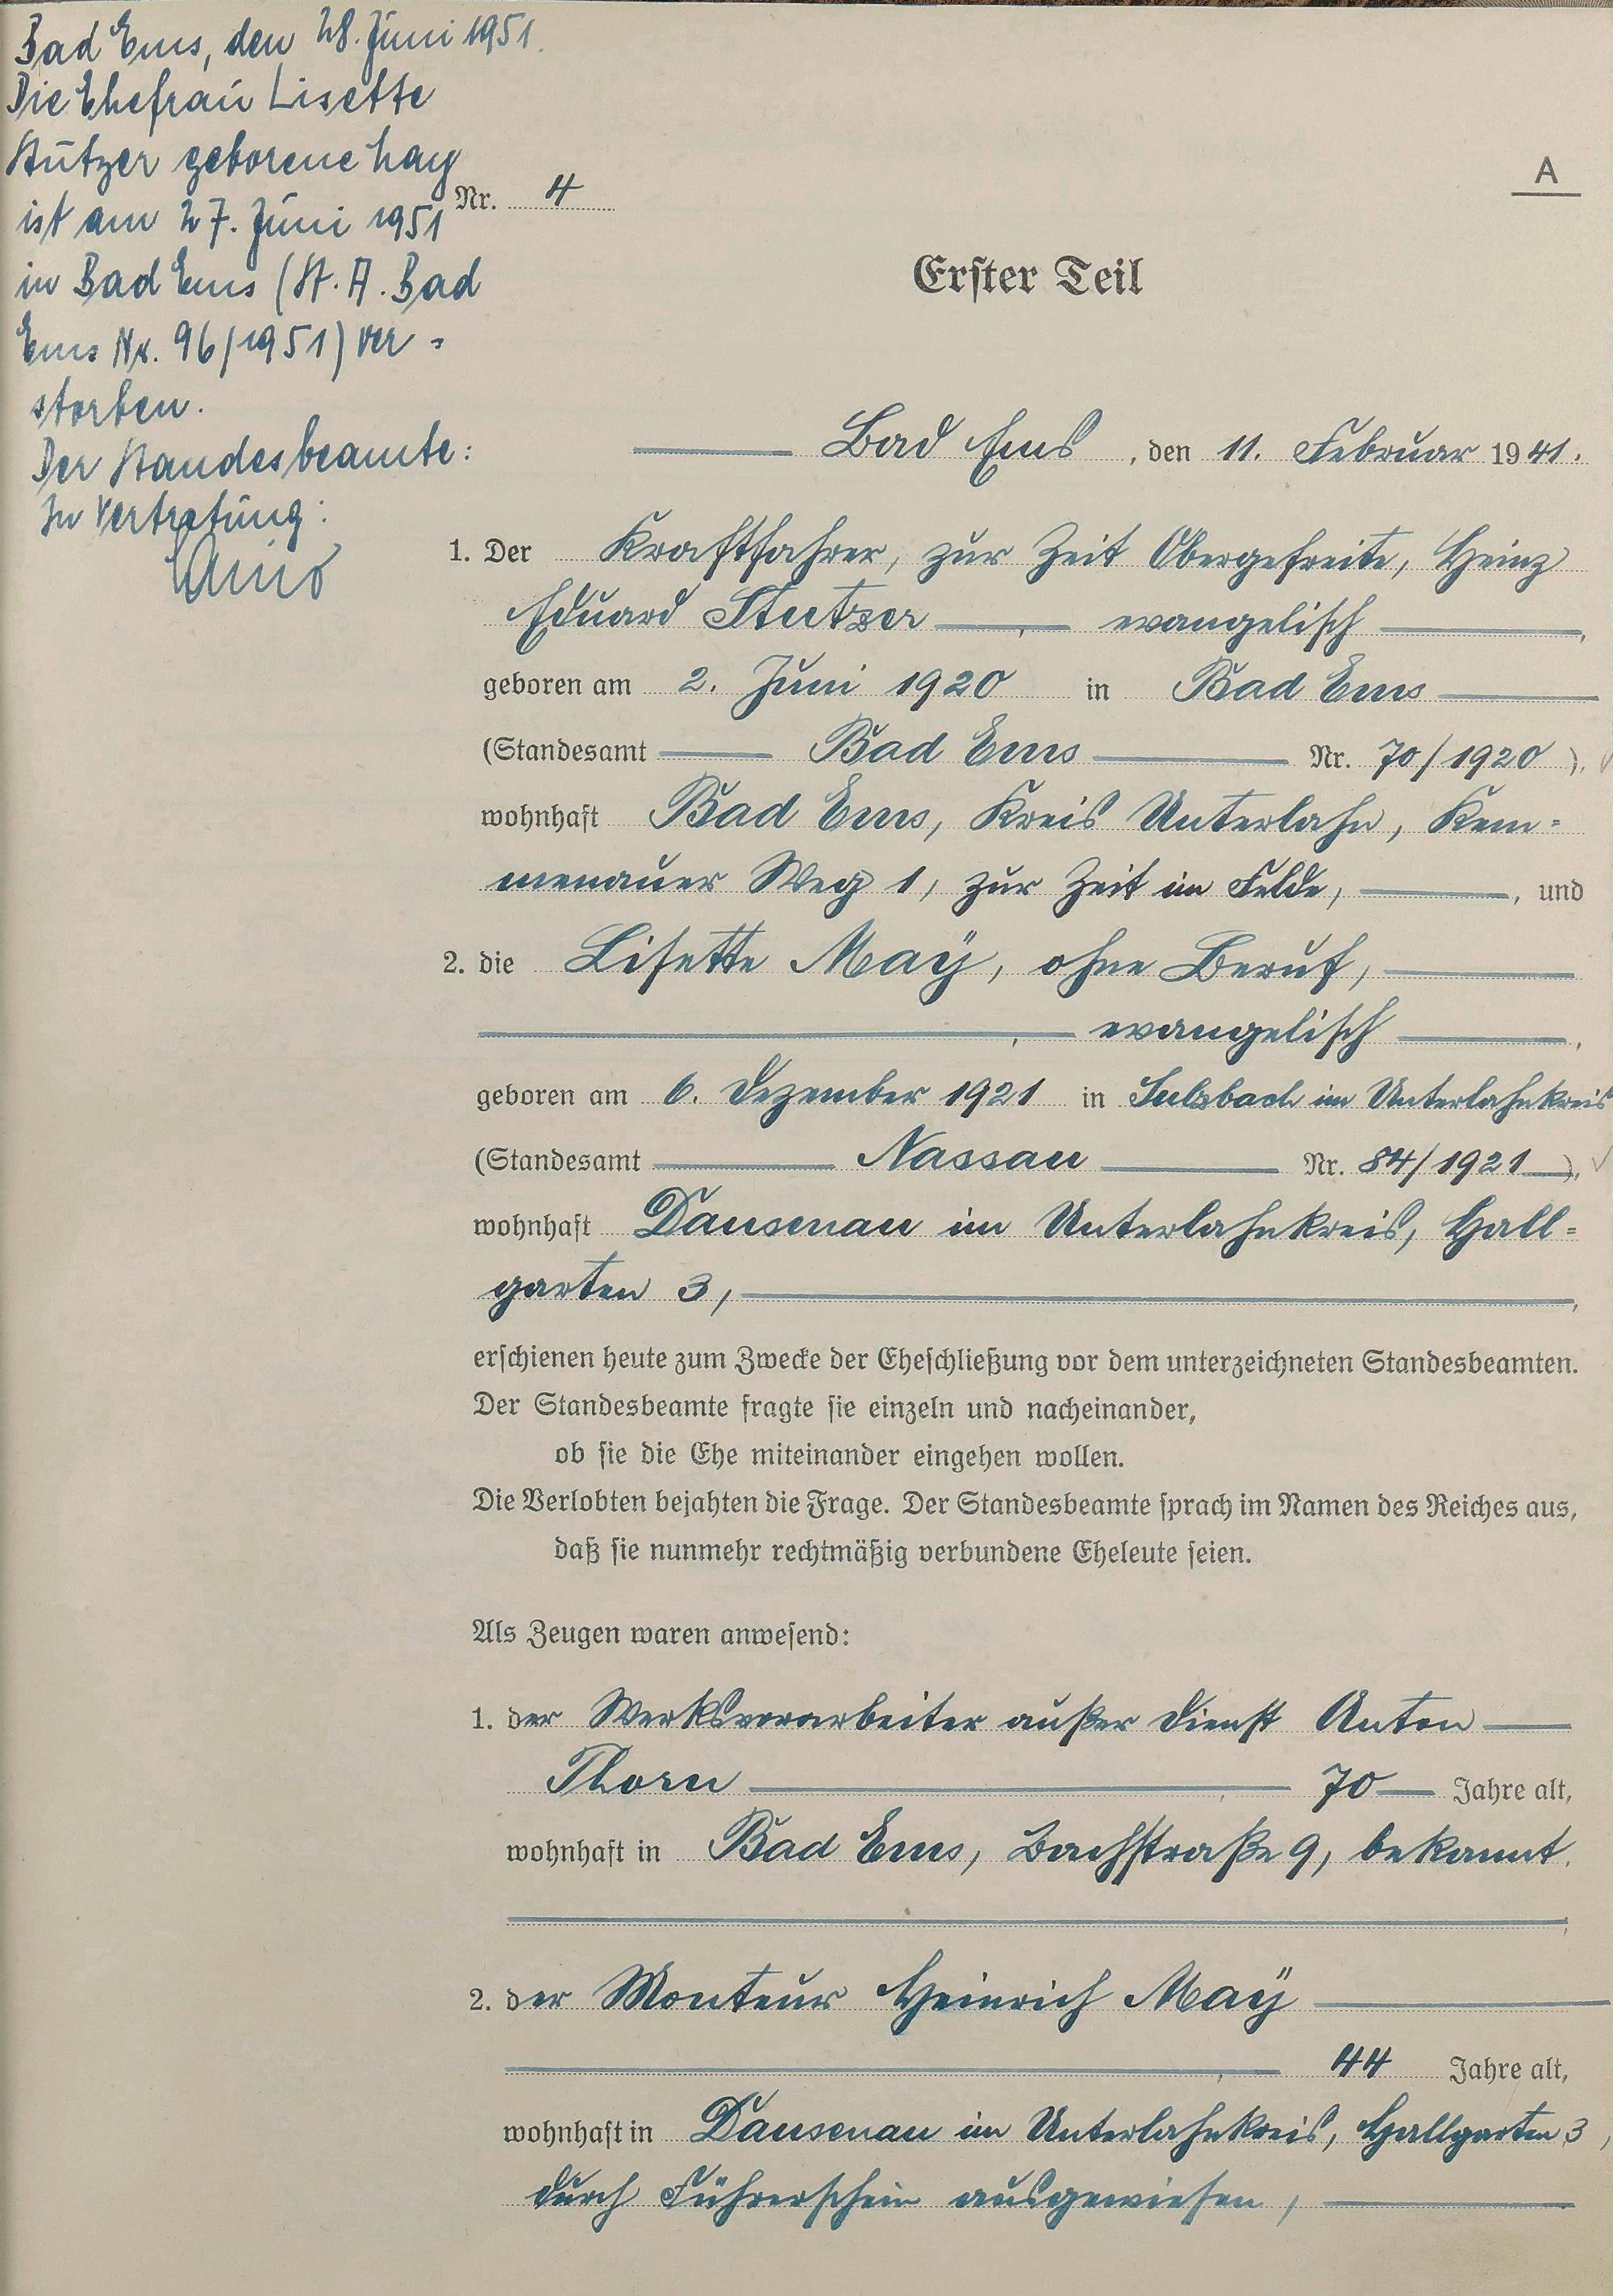 Bad Ems, den 28. Juni 1951.
Die Ehefrau Lisette
Stutzer geborene May
ist am 27. Juni 1951
in Bad Ems (St. A. Bad
Ems Nr. 96/1951) ver=
storben.
Der Standesbeamte:
In Vertretung:
A
Nr. 4
Erster Teil
Bad Ems, den 11. Februar 1941.
1. Der Kraftfahrer, zur Zeit Obergefreite, Heinz
Eduard Stutzer, evangelisch,
geboren am 2. Juni 1920 in Bad Ems
(Standesamt Bad Ems Nr. 70/1920),
wohnhaft Bad Ems, Kreis Unterlahn, Kem=
menauer Weg 1, zur Zeit im Felde, , und
2. die Lisette Maÿ, ohne Beruf,
, evangelisch,
geboren am 6. Dezember 1921 in Sulzbach im Unterlahnkreis
(Standesamt Nassau Nr. 84/1921),
wohnhaft Dausenau im Unterlahnkreis, Hall=
garten 3, ,
erschienen heute zum Zwecke der Eheschließung vor dem unterzeichneten Standesbeamten.
Der Standesbeamte fragte sie einzeln und nacheinander,
ob sie die Ehe miteinander eingehen wollen.
Die Verlobten bejahten die Frage. Der Standesbeamte sprach im Namen des Reiches aus,
daß sie nunmehr rechtmäßig verbundene Eheleute seien.
Als Zeugen waren anwesend:
1. der Werksvorarbeiter außer Dienst Anton
Thorn, 70 Jahre alt,
wohnhaft in Bad Ems, Bachstraße 9, bekannt.
2. der Monteur Heinrich Maÿ
, 44 Jahre alt,
wohnhaft in Dausenau im Unterlahnkreis, Hallgarten 3,
durch Führerschein ausgewiesen,